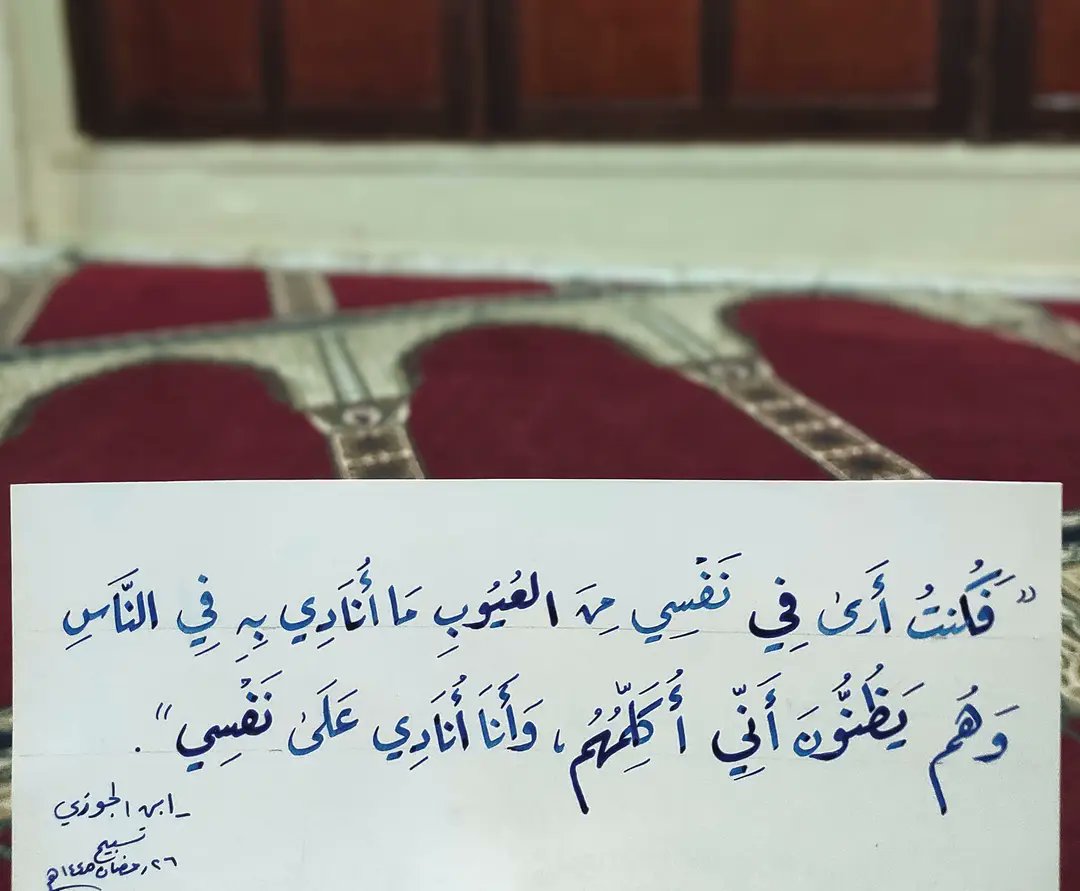 "فَكُنتُ أَرَىٰ فِي نَفْسِي مِنَ العُيُوبِ مَا أُنَادِي بِهِ فِي النَّاسِ
وَهُم يَظُنُّونَ أَنِّي أُكَلِّمُهُم، وَأَنَا أُنَادِي عَلَىٰ نَفْسِي".
_ابن الجوزي
تسبيح
٢٦ رمضان ١٤٤٥هـ